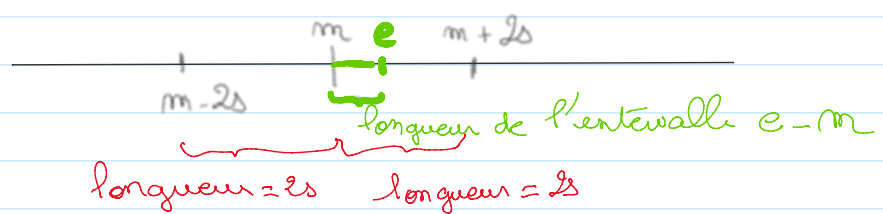 m e m + 2s
m - 2s
longueur de l'intervalle e - m
longueur = 2s longueur = 2s